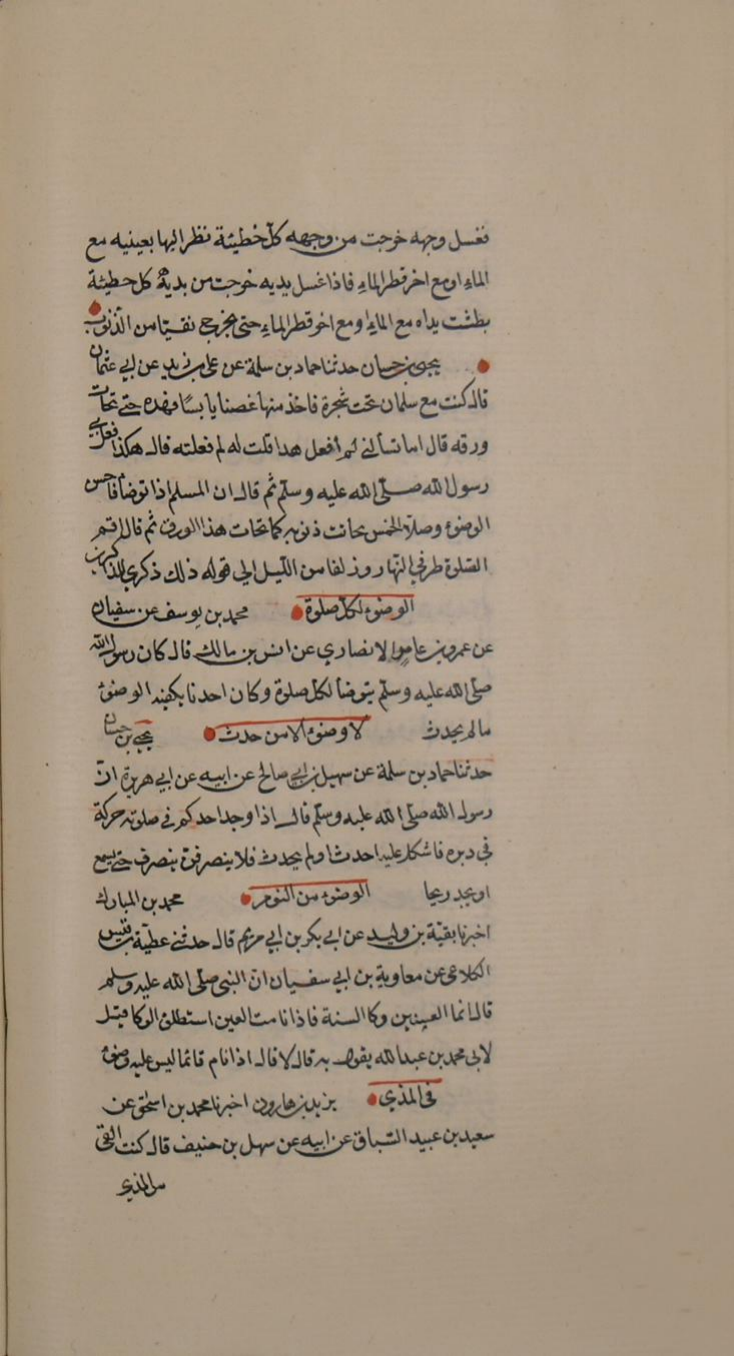 فغسل وجهه خرجت من وجهه كل خطيئة نظر اليها بعينيه مع
الماء او مع اخر قطر الماء فاذا غسل يديه خرجت من يديه كل خطيئة
بطشت يداه مع الماء او مع اخر قطر الماء حتى يخرج نقيا من الذنوب
يحيى بن حسان حدثنا حماد بن سلمة عن علي بن زيد عن ابي عثمان
قال كنت مع سلمان تحت شجرة فاخذ منها غصنا يابسا فهزه حتى تحات
ورقه قال اما تسألني لم أفعل هذا قلت له لم فعلته قال هكذا فعل بي
رسول الله صلى الله عليه وسلم ثم قال ان المسلم اذا توضأ فاحسن
الوضوء وصلى الخمس تحاتت ذنوبه كما تحات هذا الورق ثم قال اقم
الصلوة طرفي النهار وزلفا من الليل الى قوله ذلك ذكرى للذاكرين
الوضوء لكل صلوة محمد بن يوسف عن سفيان
عن عمرو بن عامر الانصاري عن انس بن مالك قال كان رسول الله
صلى الله عليه وسلم يتوضأ لكل صلوة وكان احدنا يكفيه الوضوء
ما لم يحدث لا وضوء الا من حدث يحيى بن حسان
حدثنا حماد بن سلمة عن سهيل بن ابي صالح عن ابيه عن ابي هريرة ان
رسول الله صلى الله عليه وسلم قال اذا وجد احدكم في صلوته حركة
في دبره فاشكل عليه احدث او لم يحدث فلا ينصرفن ينصرف حتى يسمع
او يجد ريحا الوضوء من النوم محمد بن المبارك
اخبرنا بقية بن وليد عن ابي بكر بن ابي مريم قال حدثني عطية بن قيس
الكلاعي عن معاوية بن ابي سفيان ان النبي صلى الله عليه وسلم
قال انما العينين وكا السنة فاذا نامت العين استطلق الوكا قيل
لابي محمد بن عبد الله يقول به قال لا قال اذا نام قائما ليس عليه وضوء
في المذي يزيد بن هارون اخبرنا محمد بن اسحق عن
سعيد بن عبيد السباق عن ابيه عن سهل بن حنيف قال كنت القى
من المذي